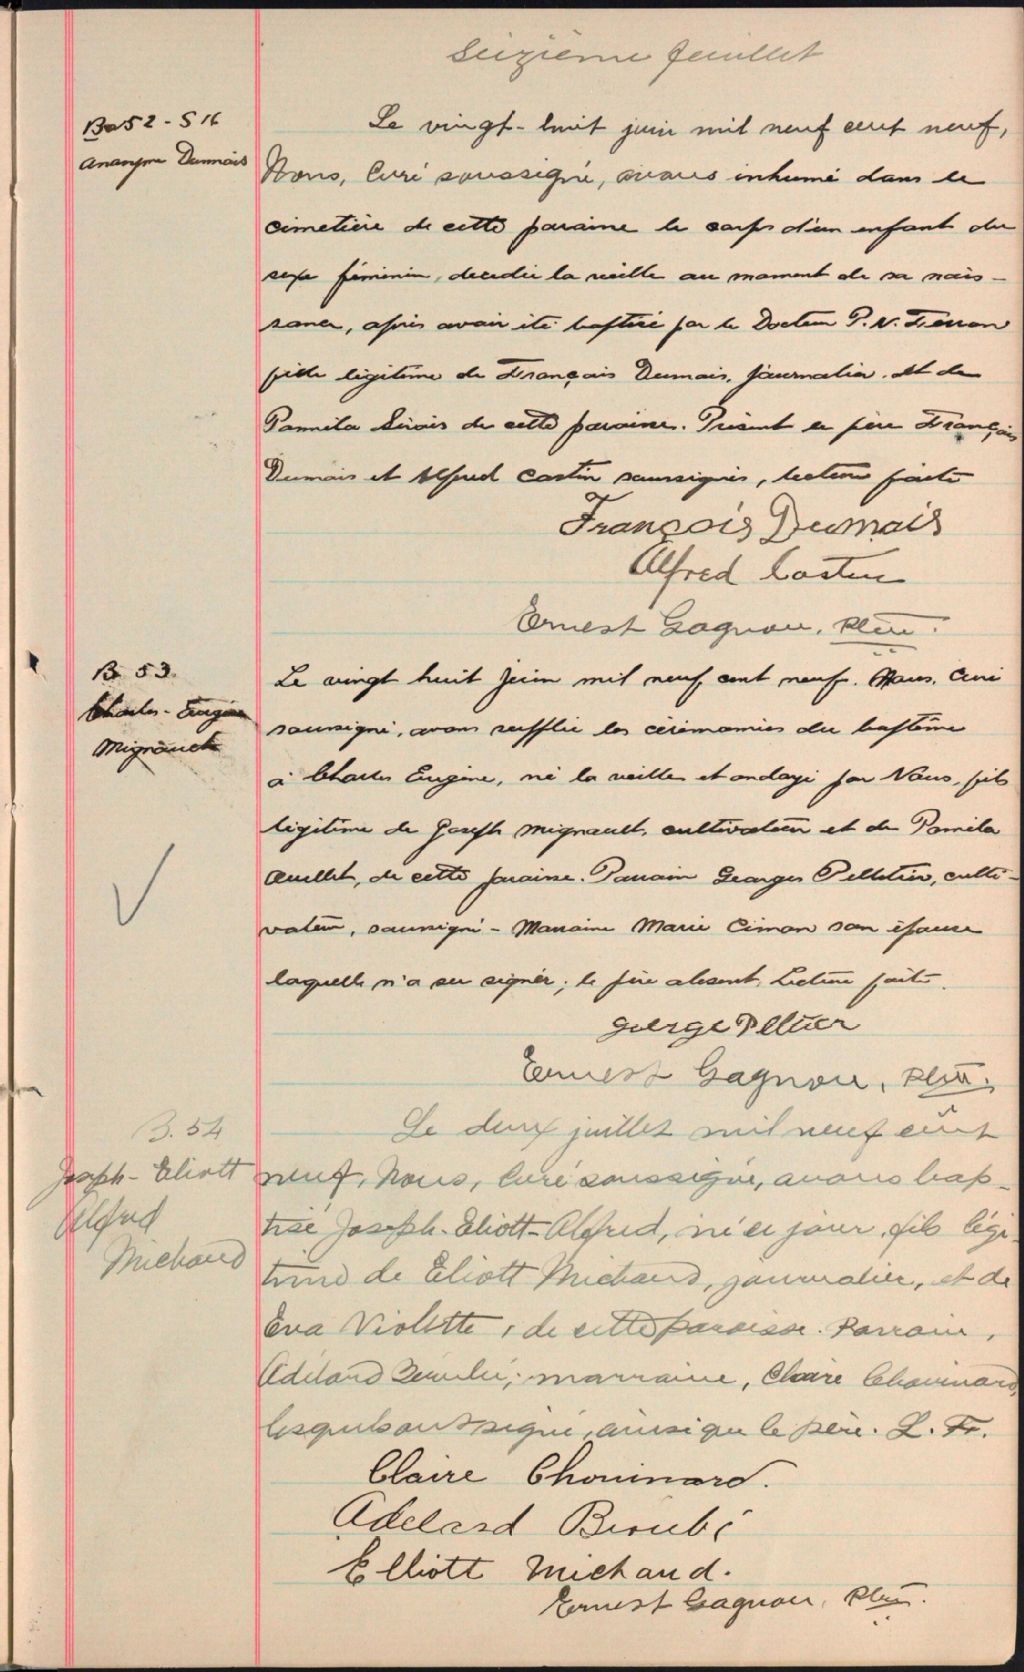 Seizième feuillet
Ba52 - S 16
Anonyme Dumais
Le vingt-huit juin mil neuf cent neuf,
Nous, Curé soussigné, avons inhumé dans le
cimetière de cette paroisse le corps d'un enfant du
sexe féminin, decedée la veille au moment de sa nais-
sance, après avoir été baptisé par le Docteur P. N.
fille légitime de François Dumais, journalier, et de
Pamela Sirois de cette paroisse. Présent le père François
Dumais et Alfred Castin soussignés, lecture faite
François Dumais
Alfred Costin
Ernest Gagnon, Ptre
B 53
Charles-Eugène
Mignault
Le vingt huit juin mil neuf cent neuf. Nous, Curé
soussigné, avons supplié les cérémonies du baptême
à Charles Eugène, né la veille et ondoyé par Nous, fils
légitime de Joseph Mignault, cultivateur et de Pamela
Ouellet, de cette paroisse. Parrain Georges Pelletier, culti-
vateur, soussigné - Marraine Marie Cimon son épouse
laquelle n'a su signer; le père absent. Lecture faite.
George Pelltier
Ernest Gagnon, Ptre.
B. 54
Joseph-Eliott
Alfred
Michaud
Le deux juillet mil neuf cent
neuf, Nous, Curé soussigné, avons bap-
tisé Joseph-Eliott-Alfred, né ce jour, fils légi-
time de Eliott Michaud, journalier, et de
Eva Violette, de cette paroisse. Parrain,
Adélard Bérubé; marraine, Claire Chouinard,
lesquels ont signé, ainsi que le père. L. F.
Claire Chouinard.
Adelard Birubé
Elliott Michaud.
Ernest Gagnon, Ptre.